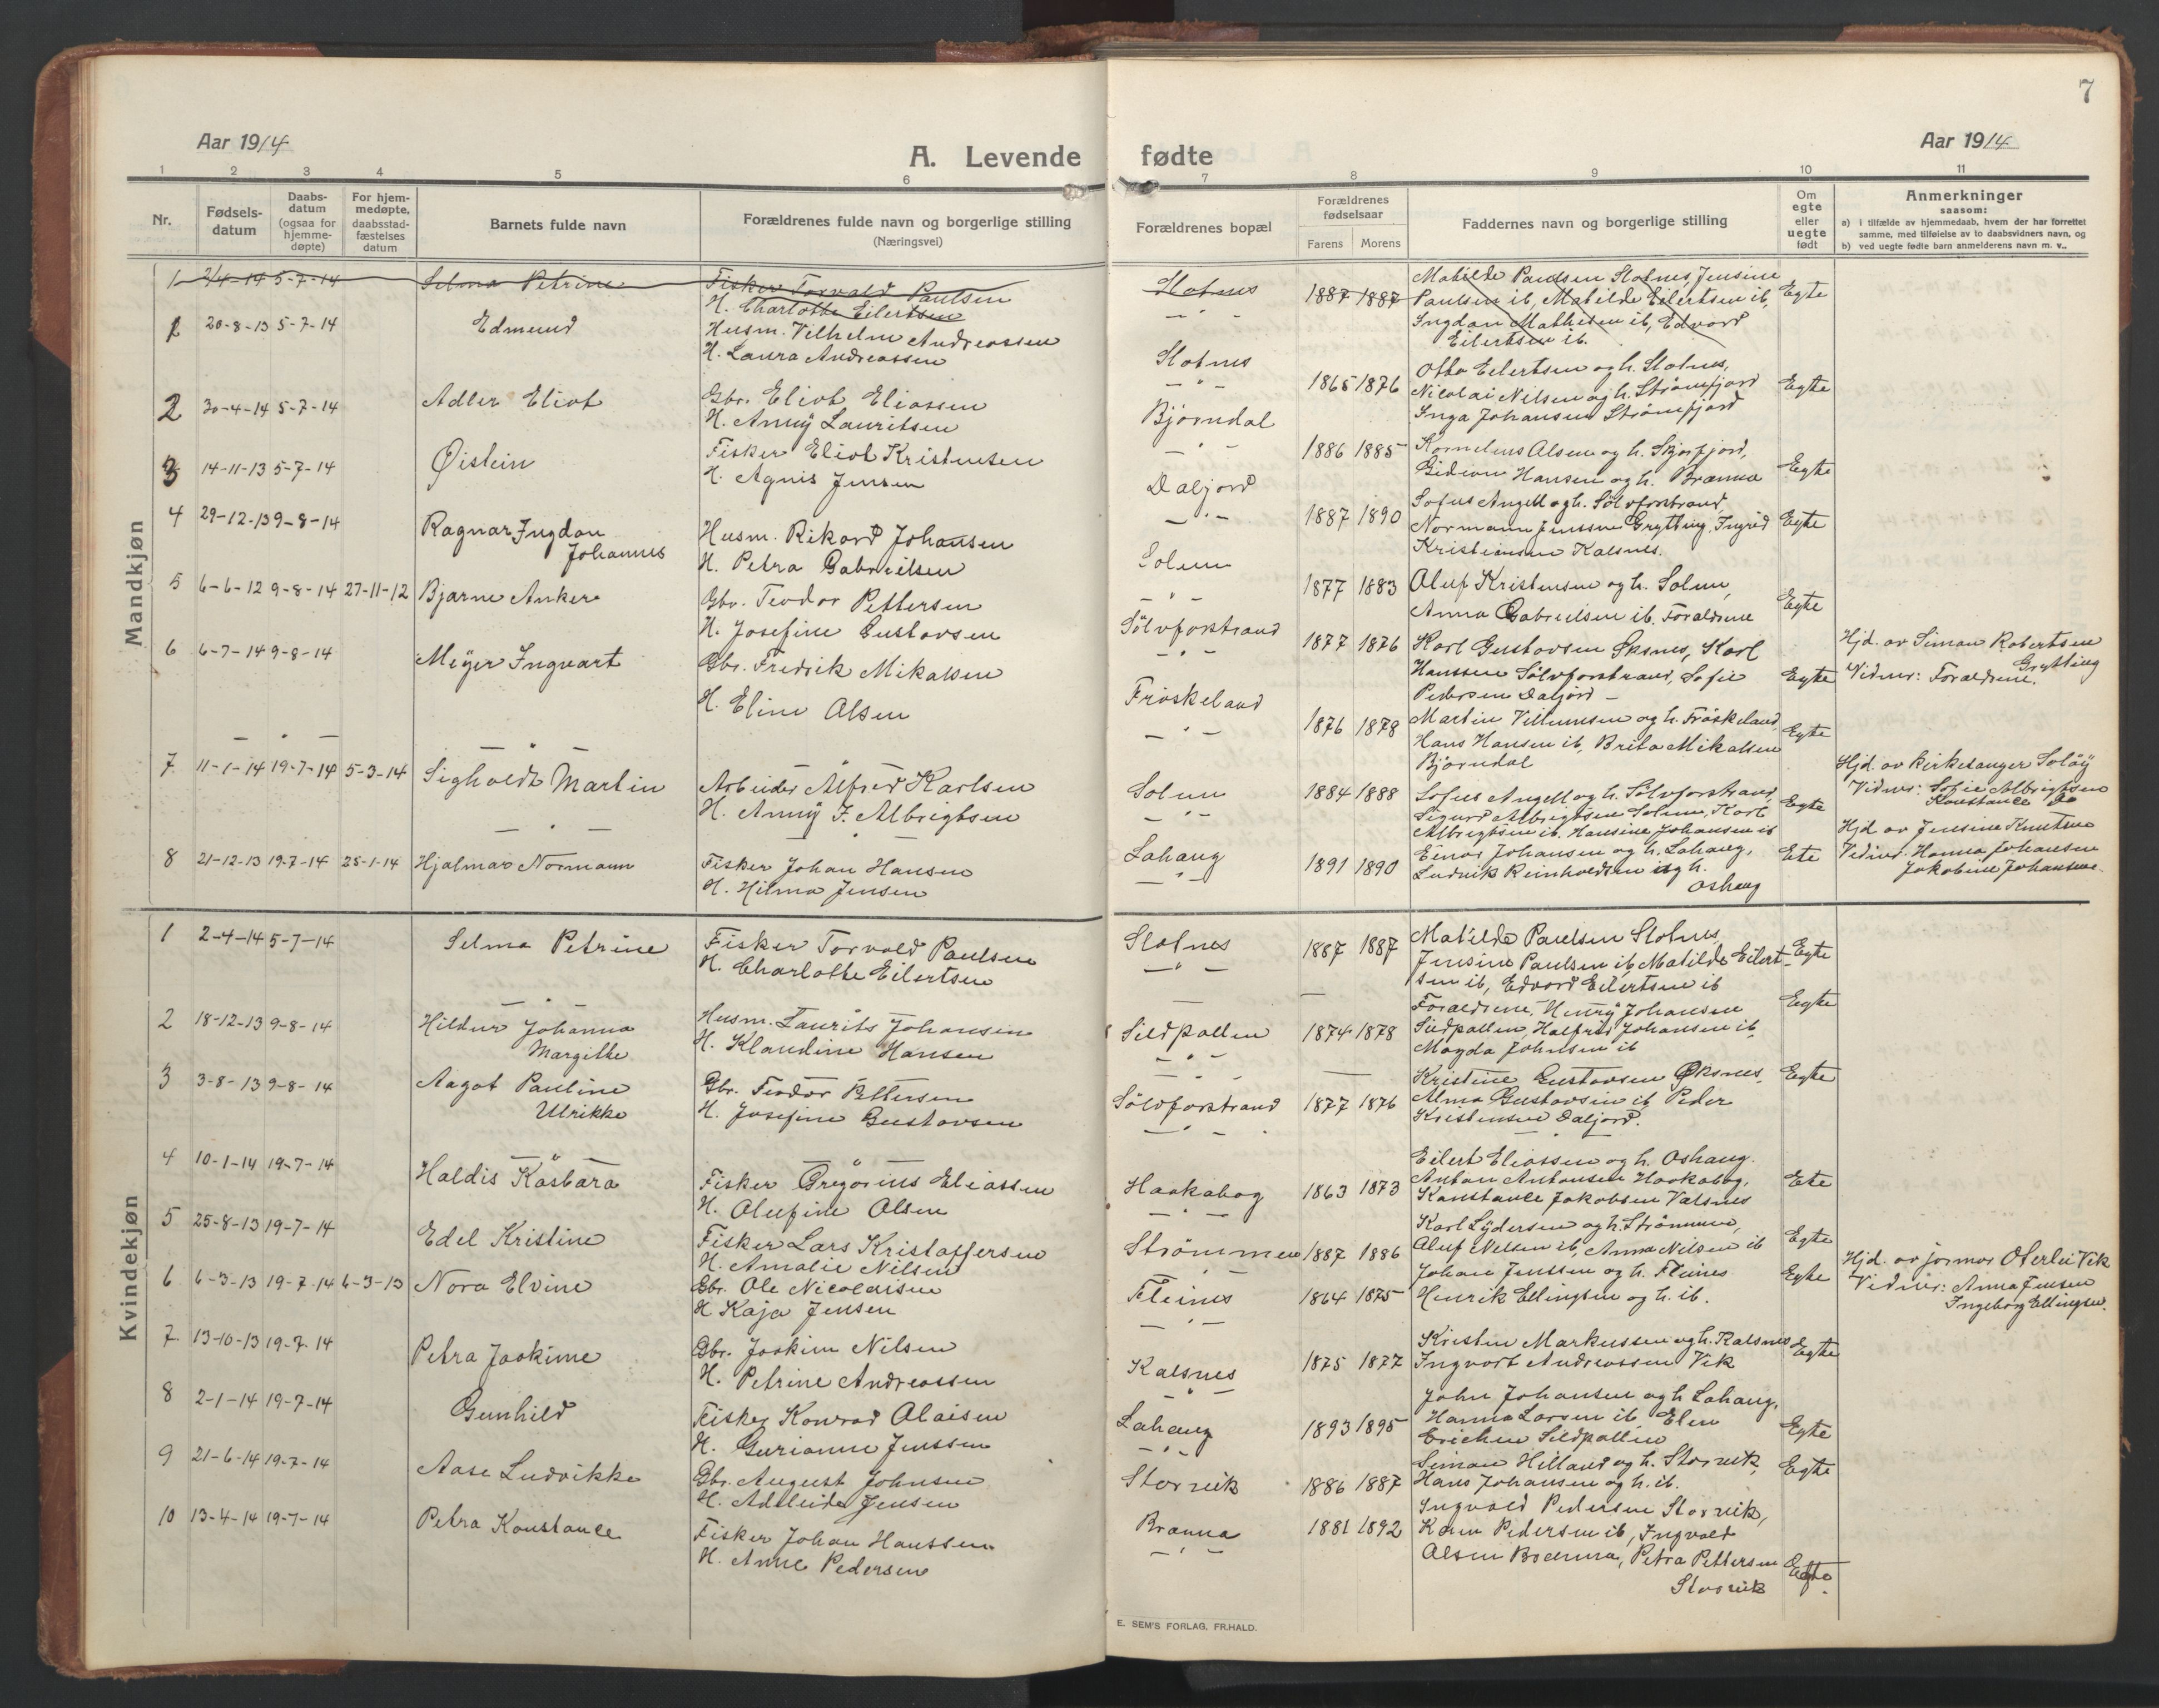 7
Aar 1914
A. Levende fødte
Aar 1914
1 2 3 4 5 6 7 8 9 10 11
Nr.
Fødsels-
datum
Daabs-
datum
(ogsaa for
hjemme-
døpte)
For hjem-
medøpte,
daabsstad-
fæstelses
datum
Barnets fulde navn
Forældrenes fulde navn og borgerlige stilling
(Næringsvei)
Forældrenes bopæl
Forældrenes
fødselsaar
Farens Morens
Faddernes navn og borgerlige stilling
Om
egte
eller
uegte
født
Anmerkninger
saasom:
a) i tilfælde av hjemmedaab, hvem der har forrettet
samme, med tilføielse av to daabsvidners navn, og
b) ved uegte fødte barn anmelderens navn m. v.,
Mandkjøn
1 2/4-14 5-7-14 Selma Petrine
Fisker Torvald Paulsen
H. Charlotte Eilertsen
Slotnes
1887 1887
Matilde Paulsen Slotnes, Jensine
Paulsen ib, Matilde Eilertsen ib,
Ingdan Mathisen ib, Edvard
Eilertsen ib.
Egte
1 20-8-13 5-7-14 Edmund
Husm. Vilhelm Andreassen
H. Laura Andreassen
Slotnes
1865 1876
Otto Eilertsen og h. Slotnes,
Nicolai Nilsen og h. Strömfjord
Inga Johansen Strömfjord
Egte
2 30-4-14 5-7-14 Adler Eliot
Gbr. Eliot Eliassen
H. Anny Lauritsen
Bjorndal
1886 1885
Kornelius Olsen og h. Skjorfjord,
Gideon Hansen og h. Brænna
Egte
3 14-11-13 5-7-14 Øistein
Fisker Eliot Kristensen
H. Agnis Jensen
Daljord
1887 1890
Sofus Angell og h. Sölvforstrand,
Normann Jenssen Grytting, Ingrid
Kristiansen Kalsnes.
Egte
4 29-12-13 9-8-14 Ragnar Ingdan
Johannes
Husm. Rikard Johansen
H. Petra Gabrielsen
Solum
1877 1883
Oluf Kristensen og h. Solum,
Anna Gabrielsen ib. Forældrene
Egte
5 6-6-12 9-8-14 27-11-12 Bjarne Anker
Gbr. Teodor Pettersen
H. Josefine Gustavsen
Sölvforstrand
1877 1876
Karl Gustavsen Øksnes, Karl
Hanssen Sölvforstrand, Sofie
Pedersen Daljord
Egte
Hjd. av Simon Robertsen
Grytting
Vidner: Forældrene.
6 6-7-14 9-8-14 Meyer Ingvart
Gbr. Fredrik Mikalsen
H. Eline Olsen
Fröskeland
1876 1878
Martin Villumsen og h. Fröskeland,
Hans Hansen ib, Brita Mikalsen
Bjorndal
Egte
7 11-1-14 19-7-14 5-3-14 Sigholdt Martin
Arbeider Alfred Karlsen
H. Anny F. Albrigtsen
Solum
1884 1888
Sofus Angell og h. Sölvforstrand,
Sigurd Albrigtsen Solum, Karl
Albrigtsen ib. Hansine Johansen ib
Egte
Hjd. av Kirkesanger Soløy
Vidner: Sofie Albrigtsen
Konstance Do
8 21-12-13 19-7-14 25-1-14 Hjalmar Normann
Fisker Johan Hansen
H. Hilma Jensen
Lahaug
1891 1890
Einar Johansen og h. Lahaug,
Ludvik Reinholdtsen og h.
Oshaug
Ete
Hjd. av Jensine Knutsen
Vidner: Hanna Johansen
Jakobine Johansen.
Kvindekjøn
1 2-4-14 5-7-14 Selma Petrine
Fisker Torvald Paulsen
H. Charlotte Eilertsen
Slotnes
1887 1887
Matilde Paulsen Slotnes,
Jensine Paulsen ib, Matilde Eilert-
sen ib, Edvard Eilertsen ib
Egte
2 18-12-13 9-8-14 Hildur Johanna
Margithe
Husm. Laurits Johansen
H. Klaudine Hansen
Sildpollen
1874 1878
Forældrene, Henry Johansen
Sildpollen, Halfrid Johansen ib,
Magda Johnsen ib
Egte
3 3-8-13 9-8-14 Aagot Pauline
Ulrikke
Gbr. Teodor Pettersen
H. Josefine Gustavsen
Sölvforstrand
1877 1876
Kristine Gustavsen Øksnes,
Alma Gustavsen ib, Peder
Kristensen Daljord.
Egte
4 10-1-14 19-7-14 Haldis Kasbara
Fisker Gregorius Eliassen
H. Olufine Olsen
Haakabog
1863 1873
Eilert Eliassen og h. Oshaug.
Anton Antonsen Haakabog,
Konstance Jakobsen Valsnes
Ete
5 25-8-13 19-7-14 Edel Kristine
Fisker Lars Kristoffersen
H. Amalie Nilsen
Strömmen
1887 1886
Karl Lydersen og h. Strömmen,
Oluf Nilsen ib, Anna Nilsen ib
Egte
6 6-3-13 19-7-14 6-3-13 Nora Elvine
Gbr. Ole Nicolaisen
H Kaja Jensen
Fleines
1864 1875
Johan Jenssen og h. Fleines
Henrik Ellingsen og h. ib.
Egte
Hjd. av jormor Oterlei Vik
Vidner: Anna Jensen
Ingeborg Ellingsen.
7 13-10-13 19-7-14 Petra Joakime
Gbr. Joakim Nilsen
H. Petrine Andreassen
Kalsnes
1875 1877
Kristen Markussen og h. Kalsnes
Ingvart Andreassen Vik
Egte
8 2-1-14 19-7-14 Gunhild
Fisker Konrad Olaisen
H. Gurianne Jenssen
Lahaug
1893 1895
John Johansen og h Lahaug,
Hanna Larsen ib, Elen
Erichsen Sildpollen
Egte
9 21-6-14 19-7-14 Aase Ludvikke
Gbr. August Johnsen
H. Adeleide Jensen
Storvik
1886 1887
Simon Hilland og h. Storvik,
Hans Johansen og h. ib.
Egte
10 13-4-14 19-7-14 Petra Konstance
Fisker Johan Hanssen
H. Anne Pedersen
Brænna
1881 1892
Ingvald Pedersen Storvik,
Karen Pedersen ib, Ingvald
Olsen Brænna, Petra Pettersen
Storvik
Egte
E. SEM'S FORLAG, FR.HALD.